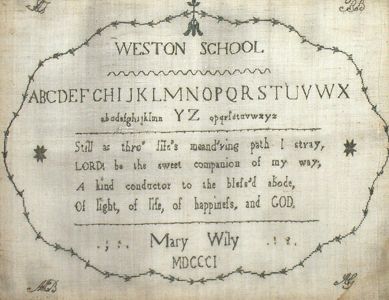 WESTON SCHOOL
ABCDEFGHIJKLMNOPQRSTUVWX
abcdefghijklmn YZ opqrſstuvwxyz
Still as thro' life's meand'ring path I stray,
LORD! be the sweet companion of my way;
A kind conductor to the bleſs'd abode,
Of light, of life, of happineſs, and GOD.
Mary Wily
MDCCCI